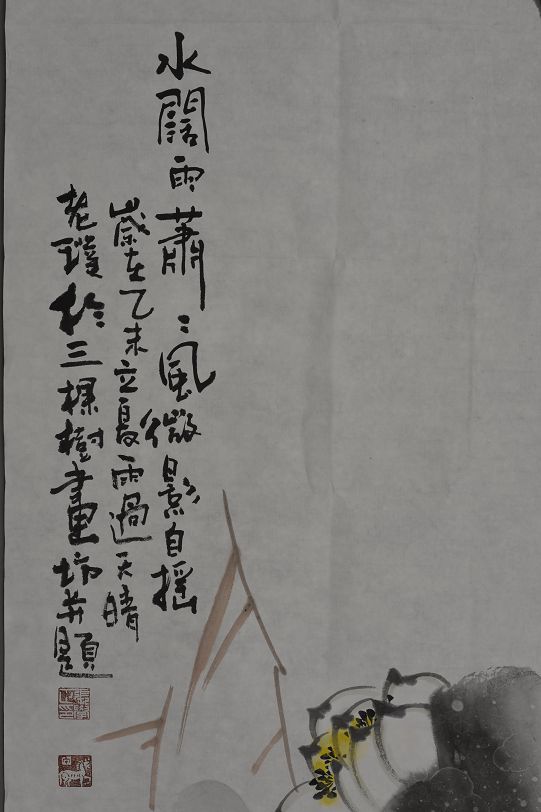 水闊雨蕭々風微影自摇
歲在乙未立夏雨過天晴
老璞於三樑樹畫坊并題